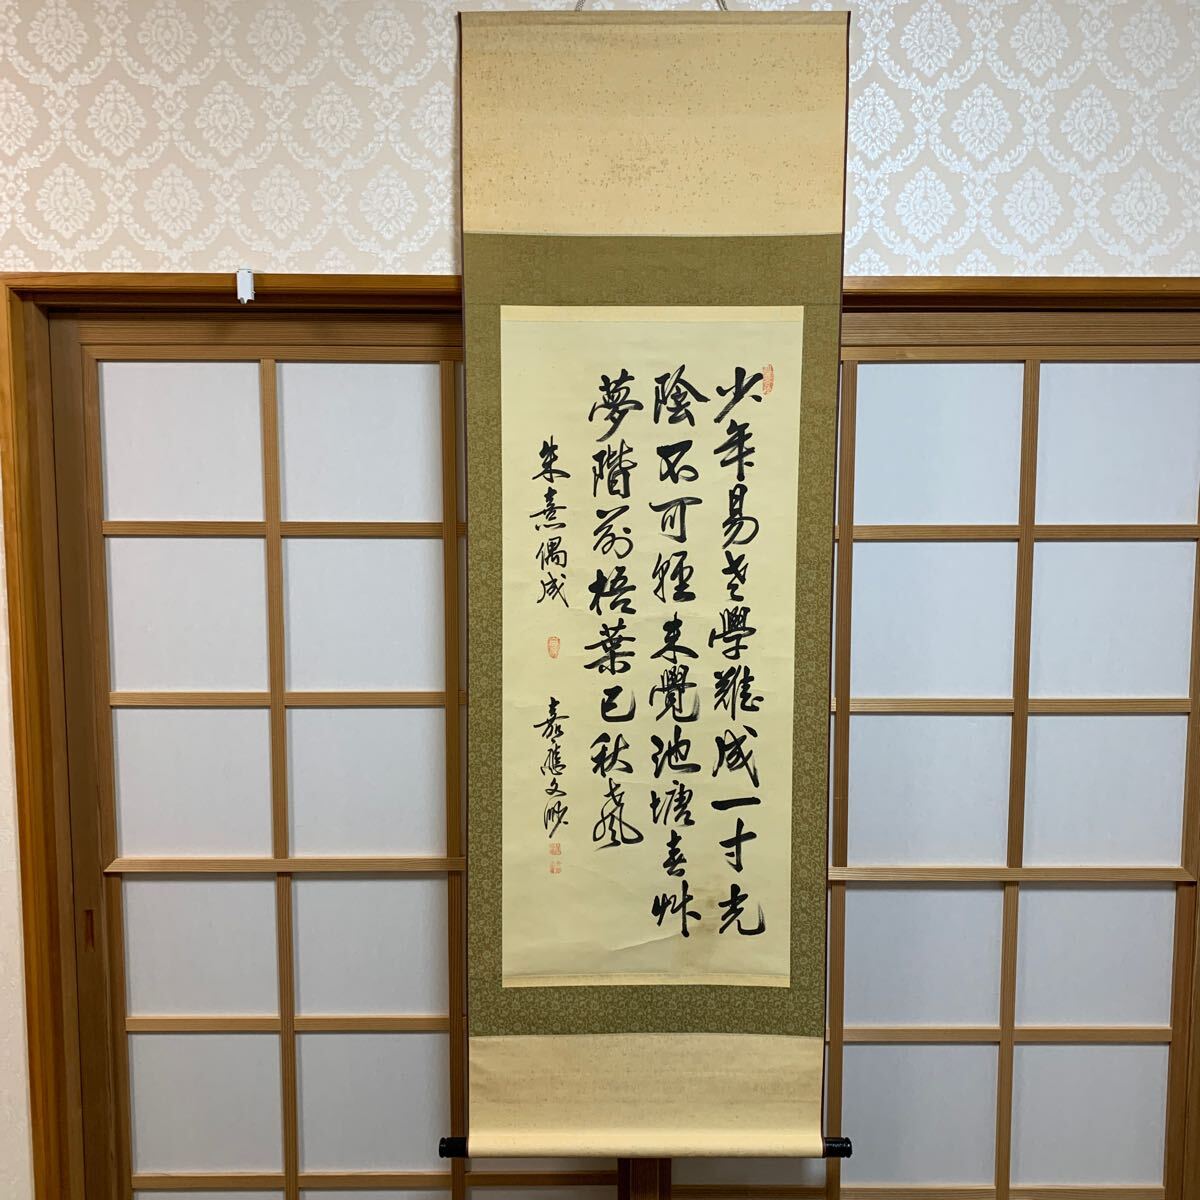 少年易老學難成一寸光
陰不可輕未覺池塘春艸
夢階前梧葉已秋聲
朱熹偶成
嘉應文